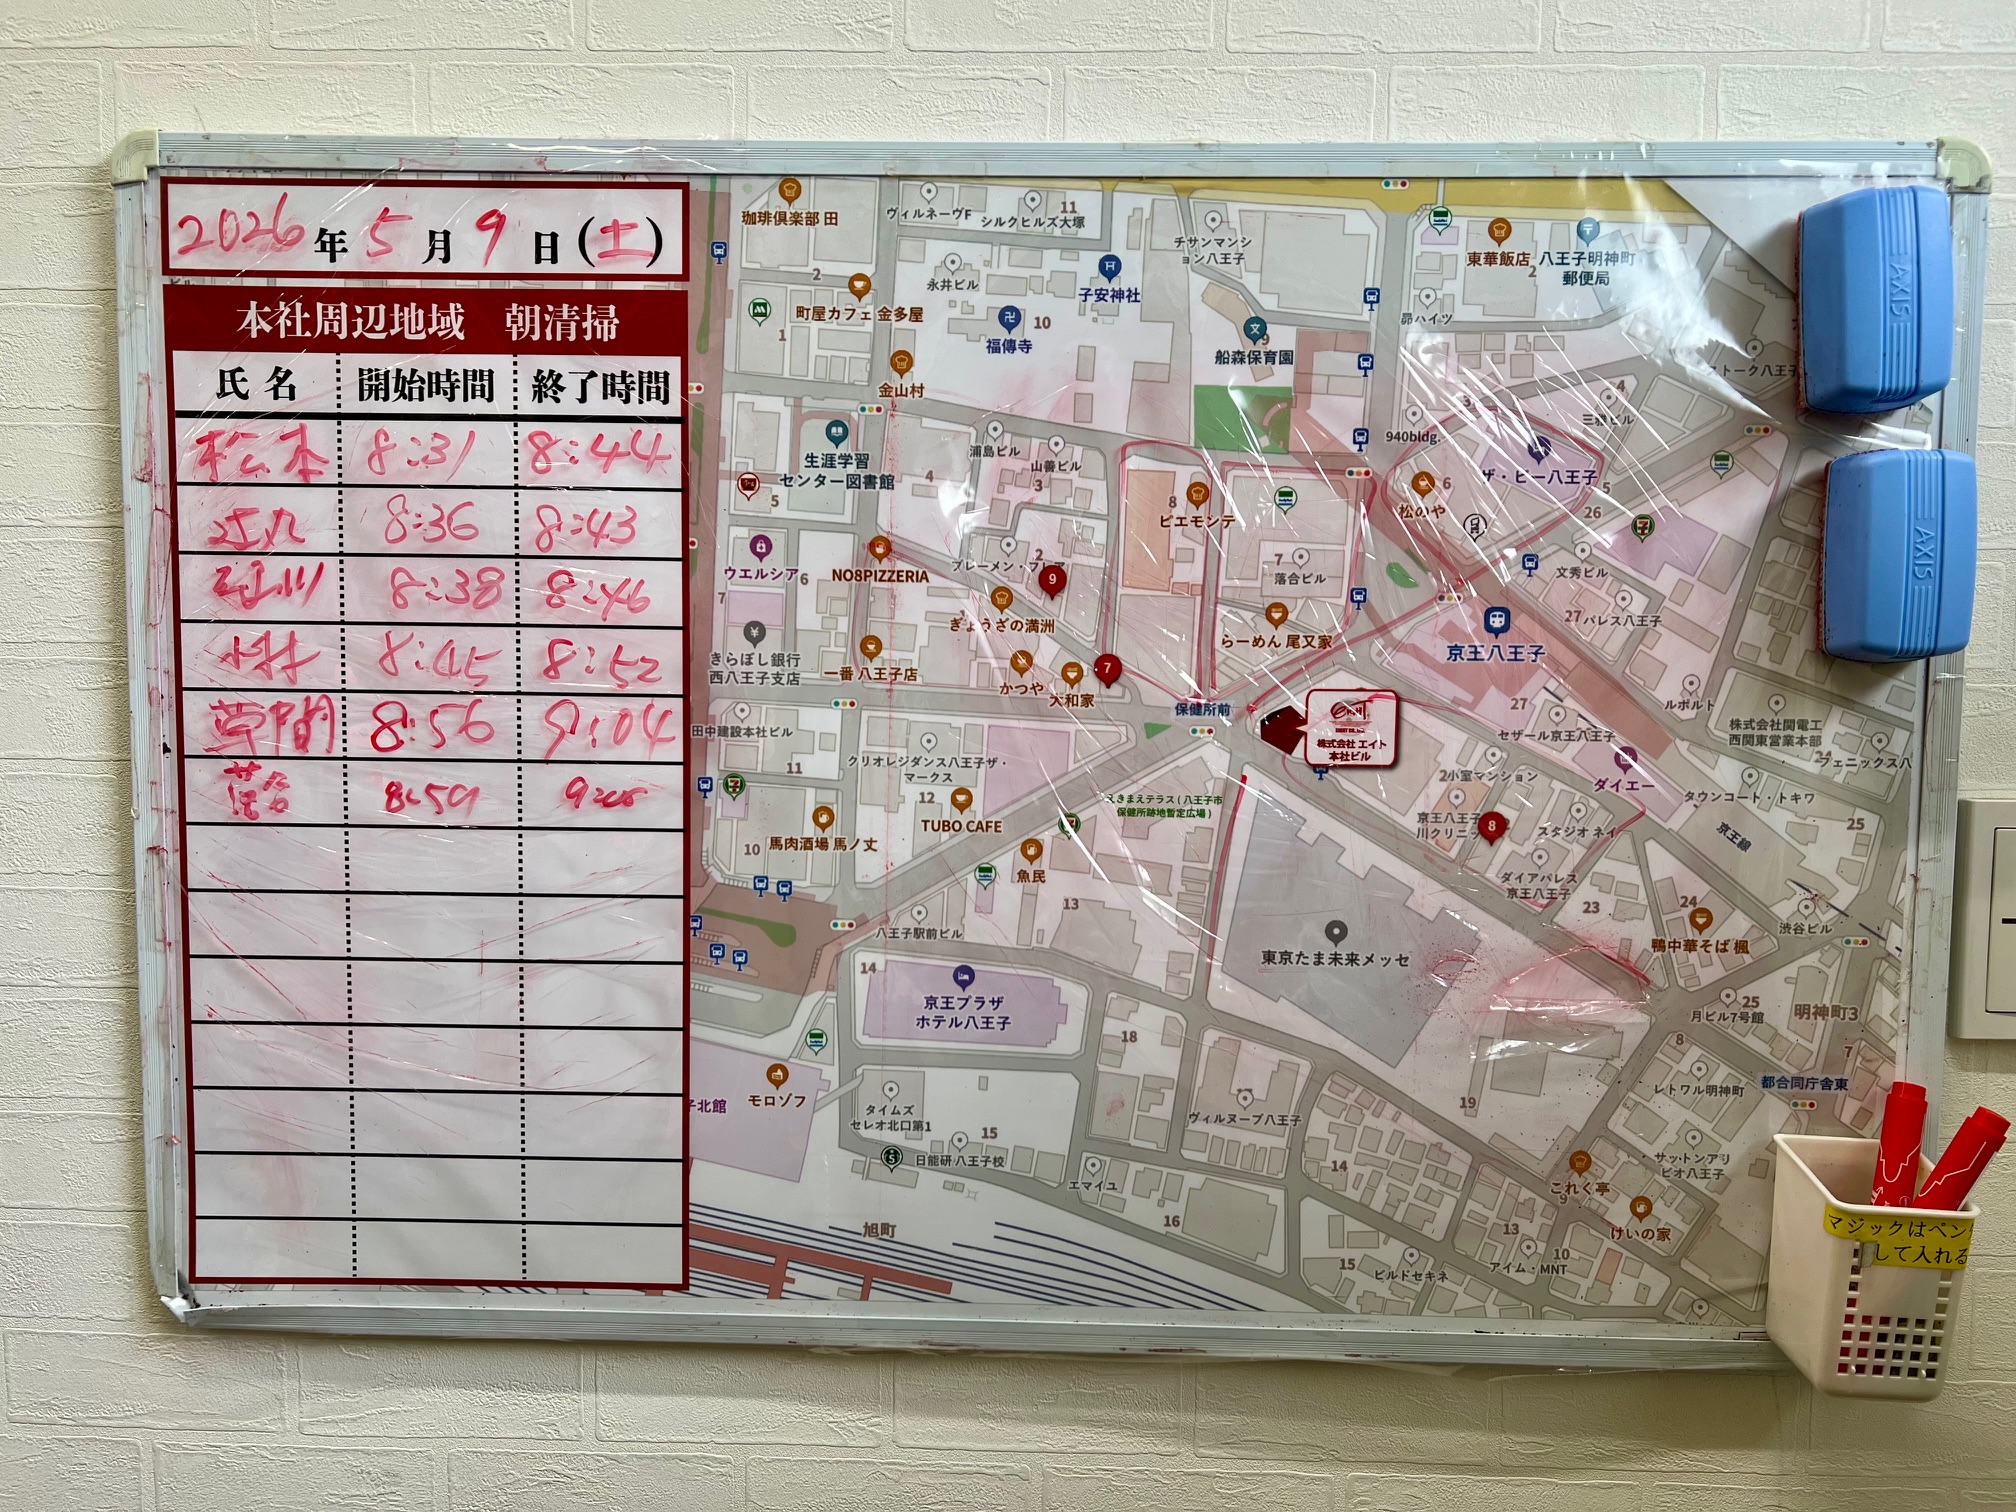 2026年5月9日(土)
本社周辺地域 朝清掃
氏名 開始時間 終了時間
松本 8:31 8:44
8:36 8:43
8:38 8:46
8:45 8:52
草間 8:56 9:04
落合 8:59
珈琲倶楽部 田
ヴィルネーヴF
シルクヒルズ大塚
11
チサンマンション八王子
東華飯店
八王子明神町
郵便局
2
永井ビル
子安神社
町屋カフェ 金多屋
福傳寺
10
船森保育園
9
昴ハイツ
ストーク八王子
1
金山村
生涯学習
センター図書館
浦島ビル
山善ビル
3
4
5
940bldg.
三雅ビル
ザ・ビー八王子
松のや
6
26
ビエモンテ
8
ウエルシア
NO8PIZZERIA
6
7
2
9
落合ビル
7
文秀ビル
ぎょうざの満洲
らーめん 尾又家
27
パレス八王子
京王八王子
きらぼし銀行
西八王子支店
一番 八王子店
かつや
大和家
7
保健所前
株式会社 エイト
本社ビル
27
ルポルト
セザール京王八王子
株式会社関電工
西関東営業本部
24
フェニックス八
田中建設本社ビル
クリオレジダンス八王子ザ・
マークス
11
12
えきまえテラス(八王子市
保健所跡地暫定広場)
小室マンション
ダイエー
タウンコート・トキワ
京王八王子
川クリニッ
8
スタジオネイ
京王線
25
馬肉酒場 馬ノ丈
TUBO CAFE
10
魚民
ダイアパレス
京王八王子
13
23
24
八王子駅前ビル
東京たま未来メッセ
鴨中華そば 楓
渋谷ビル
14
京王プラザ
ホテル八王子
25
月ビル7号館
明神町3
18
8
7
都合同庁舎東
レトワル明神町
子北館
モロゾフ
タイムズ
セレオ北口第1
15
日能研 八王子校
ヴィルヌーブ八王子
19
14
サットンアリ
ビオ八王子
エマイユ
これく亭
9
けいの家
旭町
16
13
10
15
ビルドセキネ
アイム・MNT
AXIS
AXIS
マジックはペン
して入れる